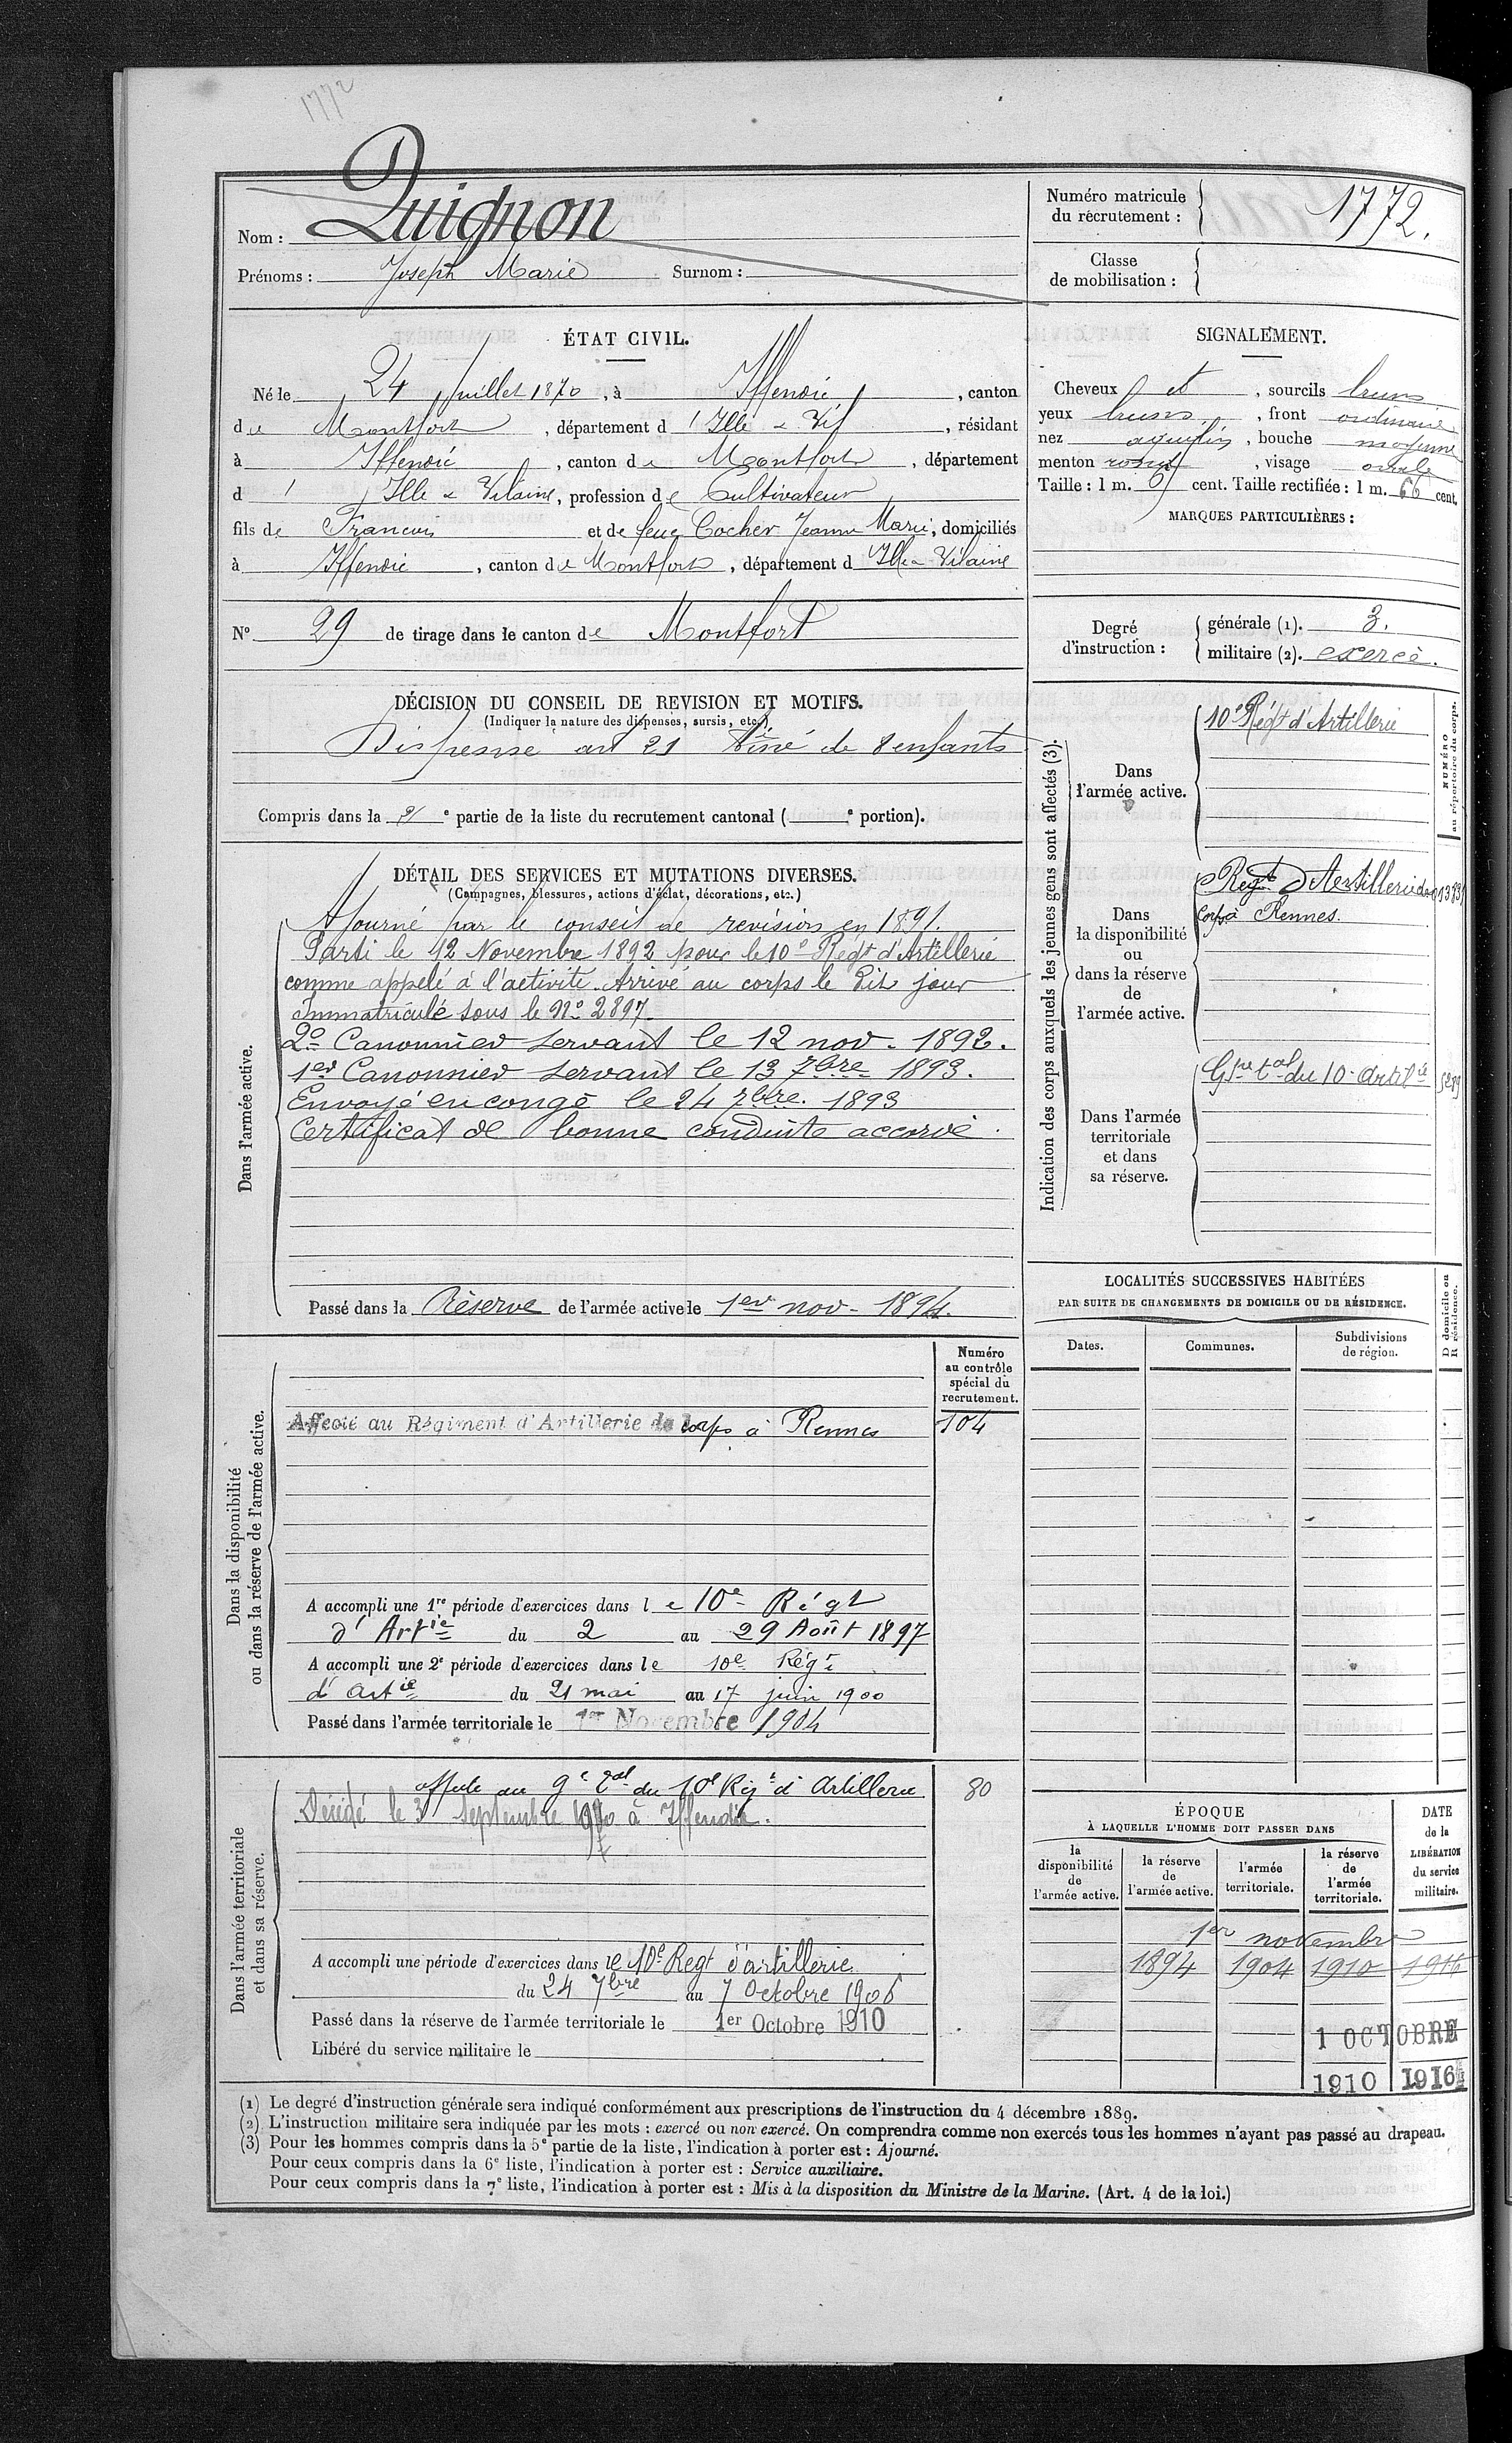 1772
Nom : Quignon
Prénoms : Joseph Marie Surnom :
Numéro matricule du recrutement : 1772.
Classe de mobilisation :
ÉTAT CIVIL.
Né le 24 Juillet 1870, à Iffendic, canton
de Montfort, département d'Ille & Vil, résidant
à Iffendic, canton de Montfort, département
d'Ille & Vilaine, profession de Cultivateur
fils de Francois et de feue Cocher Jeanne Marie, domiciliés
à Iffendic, canton de Montfort, département d'Ille & Vilaine
N° 29 de tirage dans le canton de Montfort
SIGNALEMENT.
Cheveux et , sourcils bruns
yeux bruns, front ordinaire
nez aquilin, bouche moyenne
menton rond, visage ovale
Taille : 1 m. cent. Taille rectifiée : 1 m. 66 cent.
MARQUES PARTICULIÈRES :
Degré d'instruction :
générale (1). 3.
militaire (2). exercé.
DÉCISION DU CONSEIL DE REVISION ET MOTIFS.
(Indiquer la nature des dispenses, sursis, etc.)
Dispensé art 21 Ainé de 8 enfants
Compris dans la e partie de la liste du recrutement cantonal ( e portion).
DÉTAIL DES SERVICES ET MUTATIONS DIVERSES.
(Campagnes, blessures, actions d'éclat, décorations, etc.)
Dans l'armée active.
Ajourné par le conseil de revision en 1891.
Parti le 12 Novembre 1892 pour le 10e Régt d'Artillerie
comme appelé à l'activité. Arrivé au corps le dit jour
immatriculé sous le No 2897.
2e Canonnier servant le 12 nov. 1892.
1er Canonnier servant le 13 7bre 1893.
Envoyé en congé le 24 7bre. 1893
Certificat de bonne conduite accordé.
Passé dans la Réserve de l'armée active le 1er nov. 1894.
Indication des corps auxquels les jeunes gens sont affectés (3).
NUMÉRO au répertoire du corps.
Dans l'armée active.
10e Régt d'Artillerie
Dans la disponibilité ou dans la réserve de l'armée active.
Regt d'Artillerie de
Corps à Rennes.
Dans l'armée territoriale et dans sa réserve.
Gpe tal du 10e artie
LOCALITÉS SUCCESSIVES HABITÉES
PAR SUITE DE CHANGEMENTS DE DOMICILE OU DE RÉSIDENCE.
D domicile ou R résidence.
Dates. Communes. Subdivisions de région.
Numéro au contrôle spécial du recrutement.
Dans la disponibilité ou dans la réserve de l'armée active.
Affecté au Régiment d'Artillerie de corps à Rennes 104
A accompli une 1re période d'exercices dans le 10e Régt
d'Artie du 2 au 29 Août 1897
A accompli une 2e période d'exercices dans le 10e Régt
d'artie du 21 mai au 17 juin 1900
Passé dans l'armée territoriale le 1er Novembre 1904
Dans l'armée territoriale et dans sa réserve.
affecté au Ge tal du 10e Régt d'Artillerie 80
Décédé le 3 septembre à Iffendic.
A accompli une période d'exercices dans le 10e Regt d'artillerie
du 24 7bre au 7 Octobre 1906
Passé dans la réserve de l'armée territoriale le 1er Octobre 1910
Libéré du service militaire le
ÉPOQUE
À LAQUELLE L'HOMME DOIT PASSER DANS
la disponibilité de l'armée active.
la réserve de l'armée active.
l'armée territoriale.
la réserve de l'armée territoriale.
DATE de la LIBÉRATION du service militaire.
1er novembre
1894 1904 1910 1916
1 OCTOBRE
1910 1916
(1) Le degré d'instruction générale sera indiqué conformément aux prescriptions de l'instruction du 4 décembre 1889.
(2) L'instruction militaire sera indiquée par les mots : exercé ou non exercé. On comprendra comme non exercés tous les hommes n'ayant pas passé au drapeau.
(3) Pour les hommes compris dans la 5e partie de la liste, l'indication à porter est : Ajourné.
Pour ceux compris dans la 6e liste, l'indication à porter est : Service auxiliaire.
Pour ceux compris dans la 7e liste, l'indication à porter est : Mis à la disposition du Ministre de la Marine. (Art. 4 de la loi.)